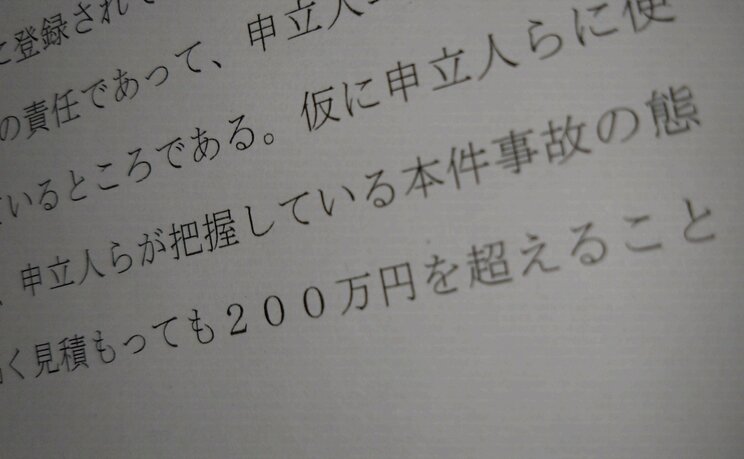 に登録されて
の責任であって、申立人
いるところである。仮に申立人らに使
、申立人らが把握している本件事故の態
く見積もっても２００万円を超えること